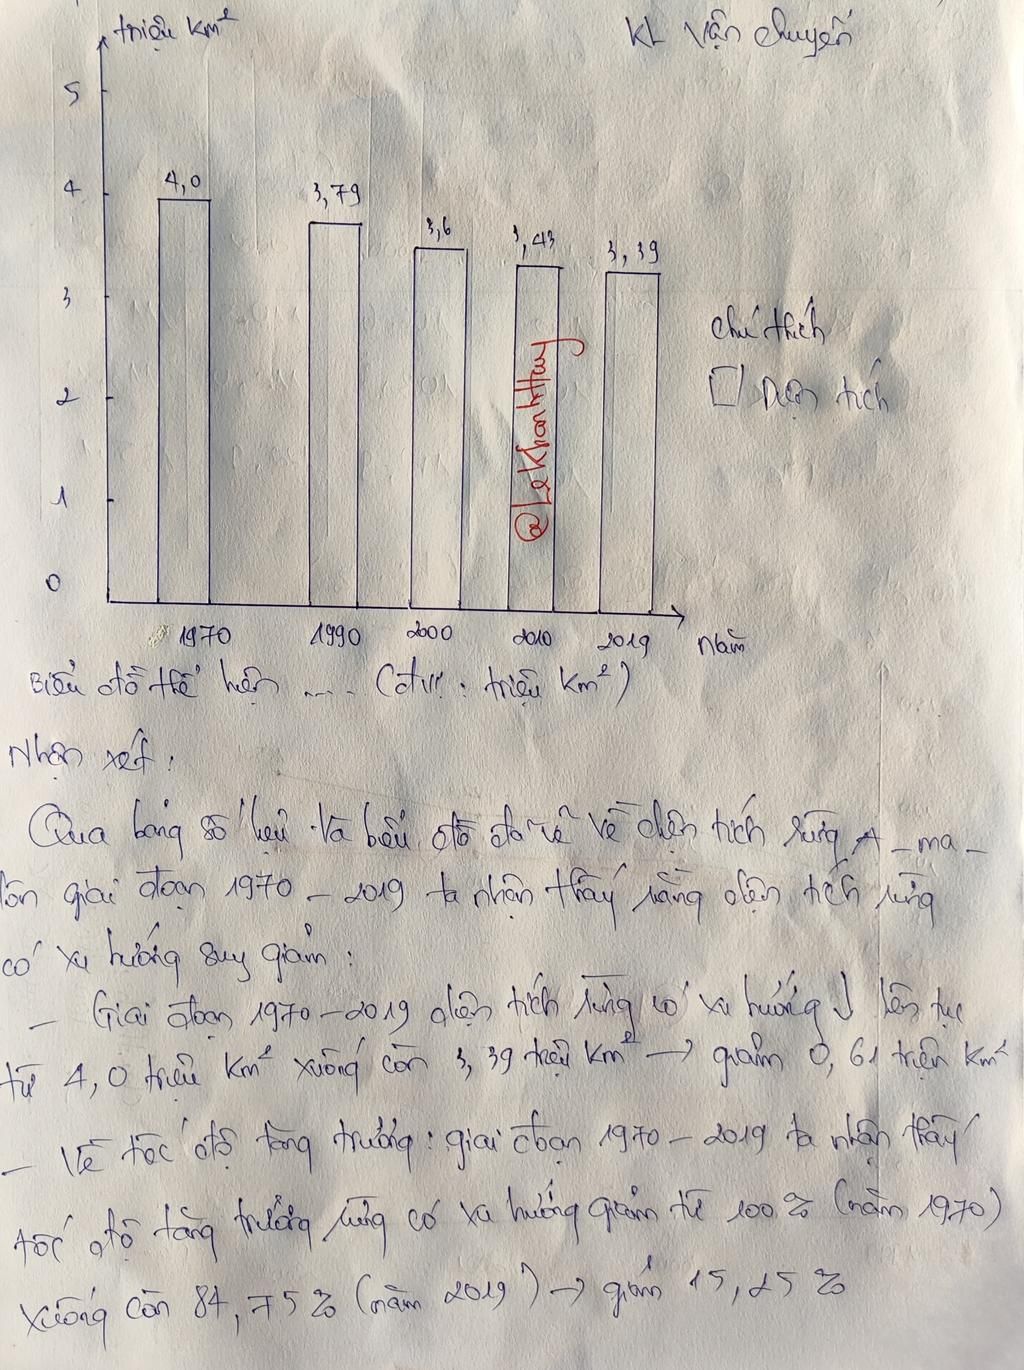 triệu km²
KL vận chuyển
5
4
3
2
1
0
4,0
3,79
3,6
3,43
3,39
@LeKhanhHuy
chú thích
Diện tích
1970
1990
2000
2010
2019
năm
Biểu đồ thể hiện .... (đvị: triệu km²)
Nhận xét:
Qua bảng số liệu và biểu đồ đã vẽ về diện tích rừng A-ma-
dôn giai đoạn 1970-2019 ta nhận thấy rằng diện tích rừng
có xu hướng suy giảm:
- Giai đoạn 1970-2019 diện tích rừng có xu hướng ↓ liên tục
từ 4,0 triệu km² xuống còn 3,39 triệu km² → giảm 0,61 triệu km²
- Về tốc độ tăng trưởng: giai đoạn 1970-2019 ta nhận thấy
tốc độ tăng trưởng rừng có xu hướng giảm từ 100% (năm 1970)
xuống còn 84,75% (năm 2019) → giảm 15,25%